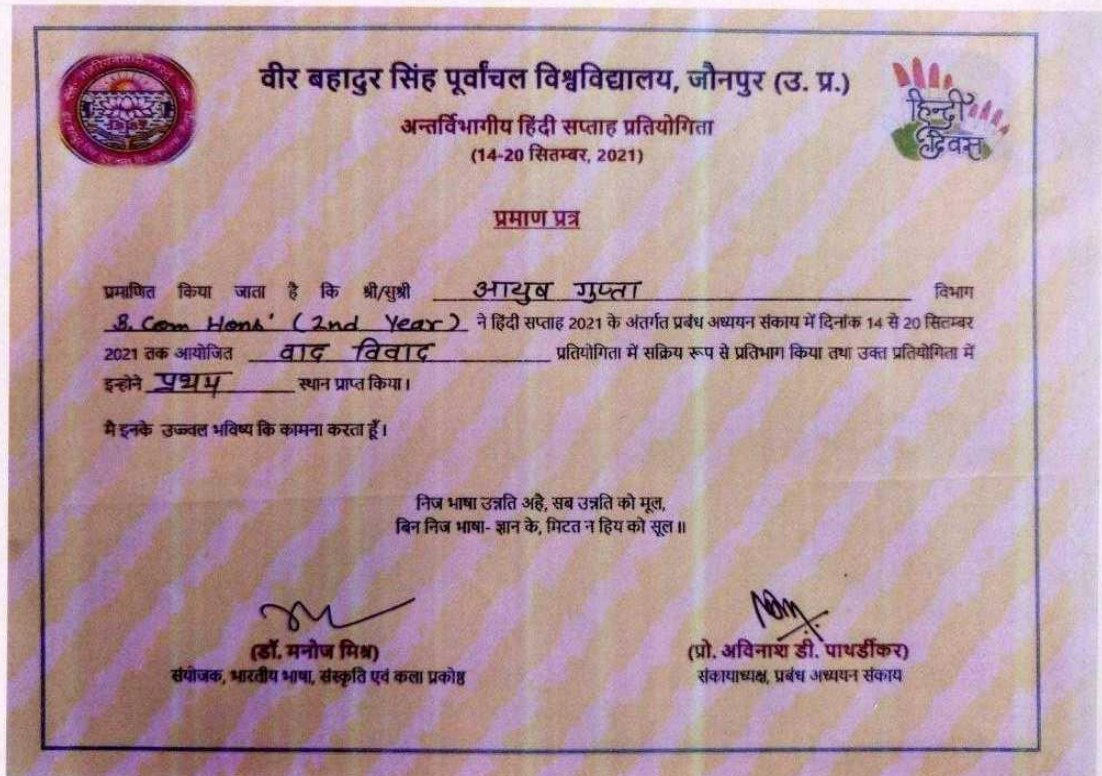 वीर बहादुर सिंह पूर्वांचल विश्वविद्यालय, जौनपुर (उ. प्र.)
अन्तर्विभागीय हिंदी सप्ताह प्रतियोगिता
(14-20 सितम्बर, 2021)
हिन्दी
दिवस
प्रमाण पत्र
प्रमाणित किया जाता है कि श्री/सुश्री आयुष गुप्ता विभाग
B. Com Hons' (2nd Year) ने हिंदी सप्ताह 2021 के अंतर्गत प्रबंध अध्ययन संकाय में दिनांक 14 से 20 सितम्बर
2021 तक आयोजित वाद विवाद प्रतियोगिता में सक्रिय रूप से प्रतिभाग किया तथा उक्त प्रतियोगिता में
इन्होने प्रथम स्थान प्राप्त किया।
मै इनके उज्ज्वल भविष्य कि कामना करता हूँ।
निज भाषा उन्नति अहै, सब उन्नति को मूल,
बिन निज भाषा- ज्ञान के, मिटत न हिय को सूल॥
(डॉ. मनोज मिश्र)
संयोजक, भारतीय भाषा, संस्कृति एवं कला प्रकोष्ठ
(प्रो. अविनाश डी. पाथर्डीकर)
संकायाध्यक्ष, प्रबंध अध्ययन संकाय